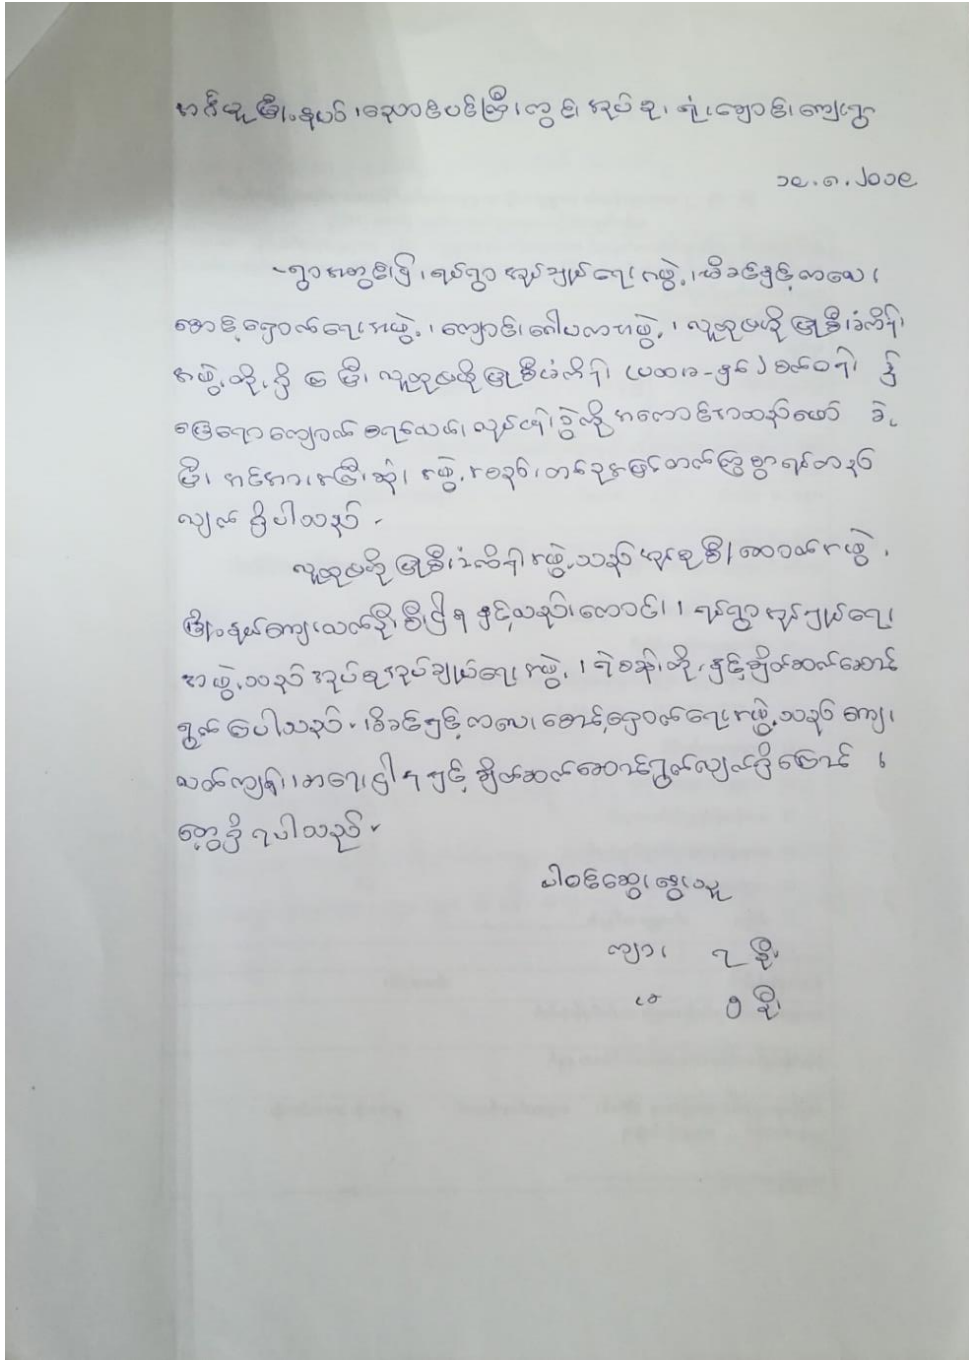 အင်္ဂပူမြို့နယ်၊ ညောင်ပင်ကြီးကွင်းအုပ်စု၊ ရုံးချောင်းကျေးရွာ
၁၉.၈.၂၀၁၉
- ရွာအတွင်း၌ ရပ်ရွာအုပ်ချုပ်ရေးအဖွဲ့၊ မိခင်နှင့်ကလေး
စောင့်ရှောက်ရေးအဖွဲ့၊ ကျောင်းအဖွဲ့၊ လူထုဗဟိုပြုစီးခံကိန်း
အဖွဲ့တို့ရှိပြီး လူထုဗဟိုပြုစီမံကိန်း (ပထမ-နှစ်) စက်ဝန်း၌
မြေရောကျောက်စရစ်လမ်းလုပ်ငန်းခွဲကို အကောင်အထည်ဖော် ခဲ့
ပြီး အင်အားအကြီးဆုံး အဖွဲ့အစည်းတစ်ခုအဖြစ်တက်ကြွစွာရပ်တည်
လျက်ရှိပါသည်။
လူထုဗဟိုပြုစီးခံကိန်းအဖွဲ့သည် အုပ်စုစီးဆောက်အဖွဲ့၊
မြို့နယ်ကျေးလက်ဦးစီးဌာနနှင့်လည်းကောင်း၊ ရပ်ရွာအုပ်ချုပ်ရေး
အဖွဲ့သည် အုပ်စုအုပ်ချုပ်ရေးအဖွဲ့၊ ရဲစခန်းတို့နှင့်ချိတ်ဆက်ဆောင်
ရွက်ပါသည်။ မိခင်နှင့်ကလေးစောင့်ရှောက်ရေးအဖွဲ့သည် ကျေး
လက်ကျန်းမာရေးဌာနနှင့် ချိတ်ဆက်ဆောင်ရွက်လျက်ရှိကြောင်း
တွေ့ရှိရပါသည်။
ပါဝင်ဆွေးနွေးသူ
ကျား ၇ ဦး
မ ၆ ဦး